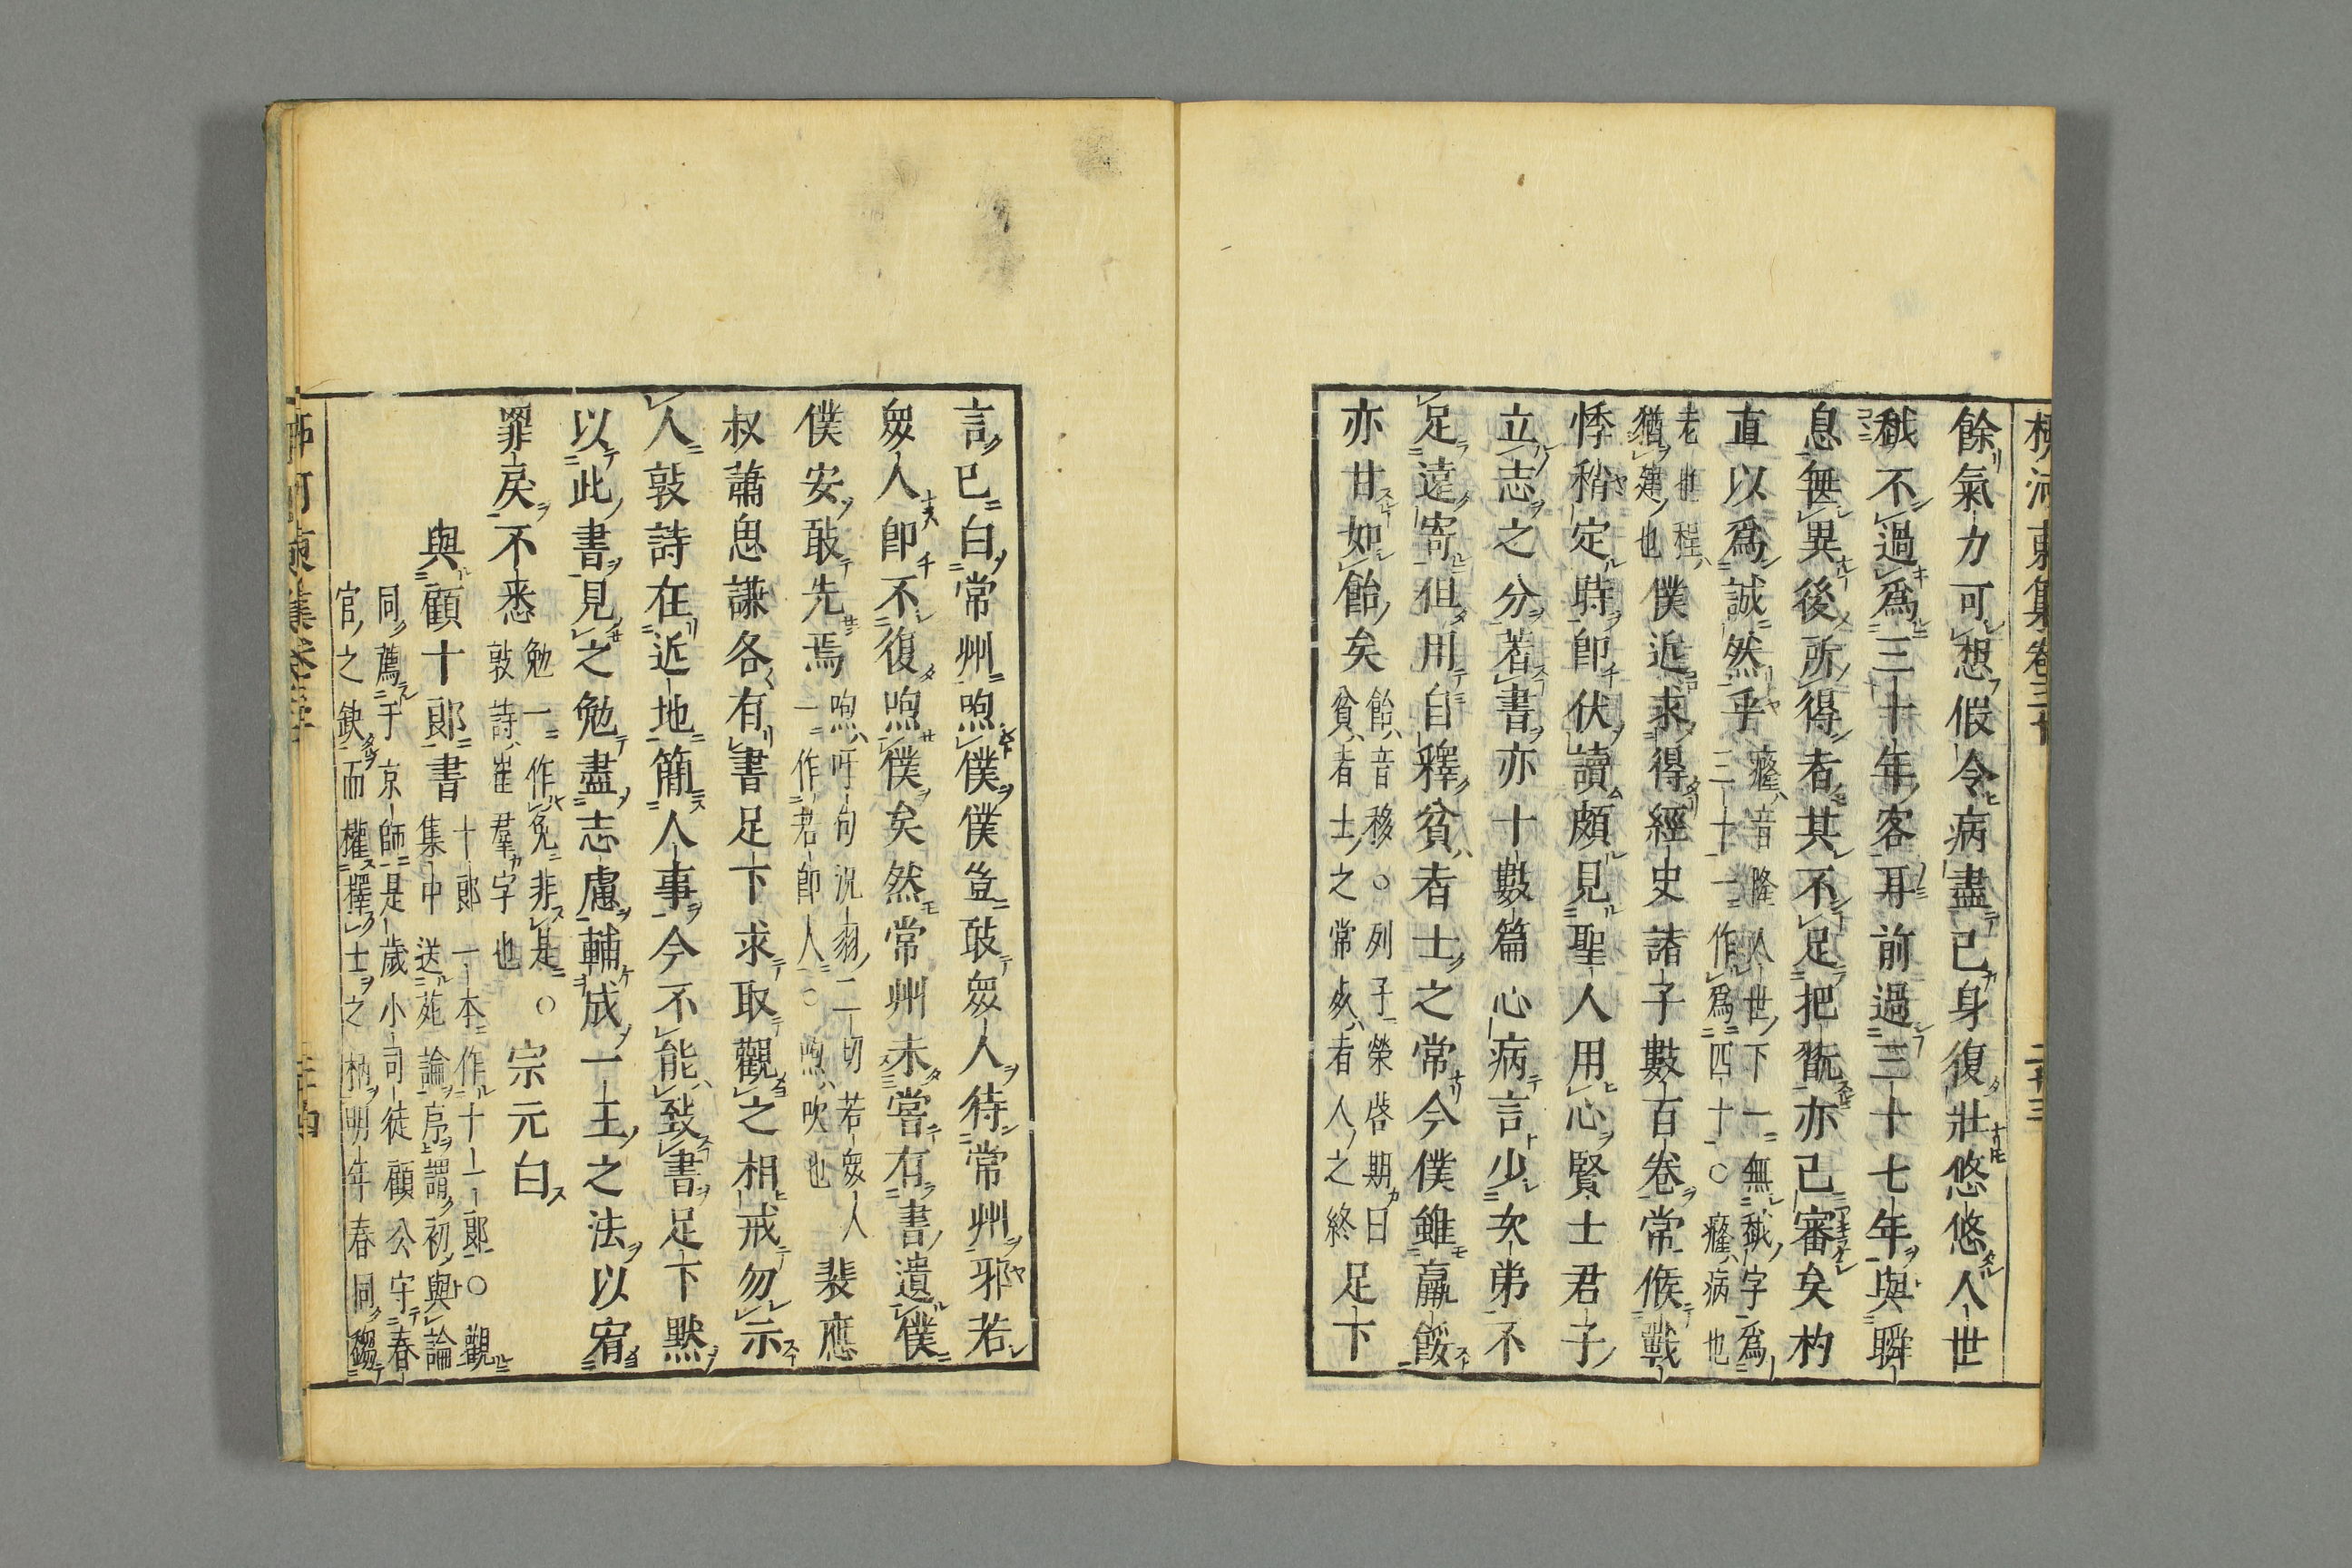 柳河東集卷三十　二十三
餘氣力可想假令病盡已身復壯悠悠人世
越不過爲三十年客耳前過三十七年與瞬
息無異後所得者其不足把翫亦已審矣杓
直以爲誠然乎
癃音隆人世下一無越字爲
三十一作爲四十○癃病也
老也程
猶建也
僕近求得經史諸子數百卷常候戰
悸稍定時即伏讀頗見聖人用心賢士君子
立志之分著書亦十數篇心病言少次弟不
足遠寄但用自釋貧者士之常今僕雖羸餒
亦甘如飴矣
飴音移○列子榮啓期曰
貧者士之常死者人之終
足下
言已白常州煦僕僕豈敢衆人待常州邪若
衆人即不復煦僕矣然常州未嘗有書遺僕
僕安敢先焉
煦吁句況羽二切若衆人
一作若即人○煦吹也
裴應
叔蕭思謙各有書足下求取觀之相戒勿示
人敦詩在近地簡人事今不能致書足下默
以此書見之勉盡志慮輔成一王之法以宥
罪戾不悉
勉一作免非是○
敦詩崔羣字也
宗元白
與顧十郎書
十郎一本作十一郎○觀
集中送苑論序謂初與論
同薦于京師是歲小司徒顧公守春
官之缺而權擇士之柄明年春同趨
柳河東集卷三十　二十四